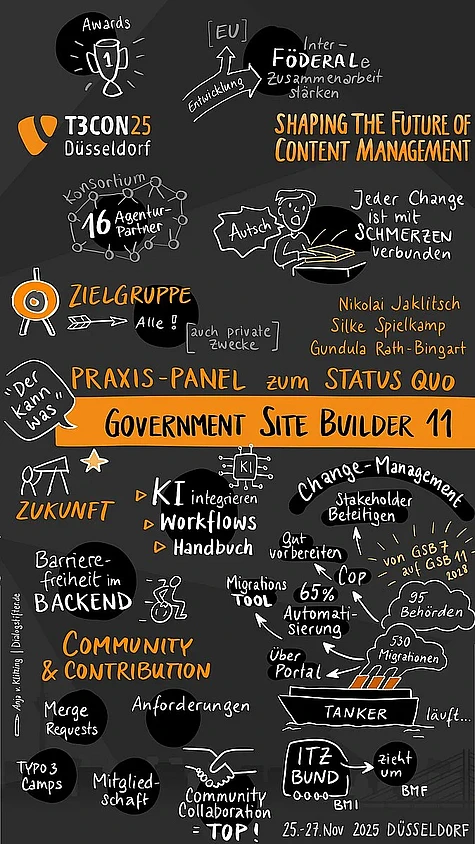 Awards
1
[EU]
Entwicklung
Inter-
FÖDERALe
Zusammenarbeit
stärken
T3CON25
Düsseldorf
SHAPING THE FUTURE OF
CONTENT MANAGEMENT
Konsortium
16 Agentur-
Partner
Autsch
Jeder Change
ist mit
SCHMERZEN
verbunden
ZIELGRUPPE
Alle!
[auch private
Zwecke]
Nikolai Jaklitsch
Silke Spielkamp
Gundula Rath-Bingart
"Der
kann
was"
PRAXIS-PANEL zum STATUS QUO
GOVERNMENT SITE BUILDER 11
ZUKUNFT
KI
KI integrieren
Workflows
Handbuch
Change-Management
Stakeholder
Beteiligen
Gut
vorbereiten
Cop
von GSB 7
auf GSB 11
2028
Barriere-
freiheit im
BACKEND
Migrations
TOOL
65%
Automati-
sierung
95
Behörden
530
Migrationen
Über
Portal
TANKER
läuft...
COMMUNITY
& CONTRIBUTION
Merge
Requests
Anforderungen
TYPO3
Camps
Mitglied-
schaft
Community
Collaboration
= TOP!
ITZ
BUND
BMI
zieht
um
BMF
25.-27. Nov 2025 DÜSSELDORF